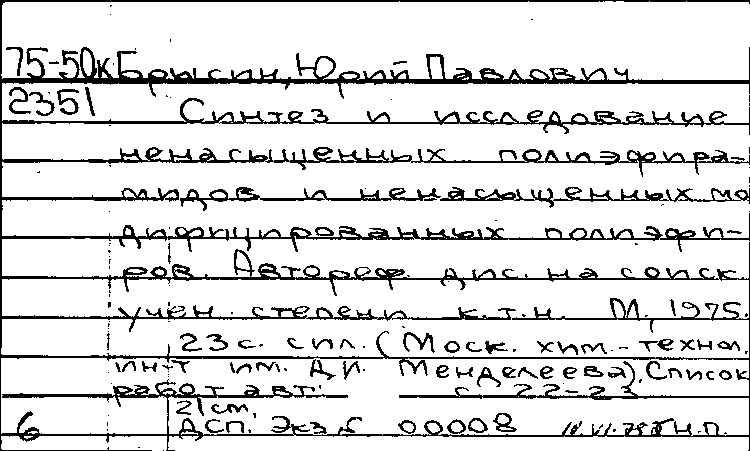 75-50к Брысин, Юрий Павлович
2351 Синтез и исследование
ненасыщенных полиэфира-
мидов и ненасыщенных мо
дифицированных полиэфи-
ров. Автореф. дис. на соиск.
учен. степени к.т.н. М., 1975.
23 с. с ил. (Моск. хим.-технол.
ин-т им. Д.И. Менделеева). Список
работ авт: с. 22-23
21 см.
6 ДСП. Экз. 00008 Н.П.